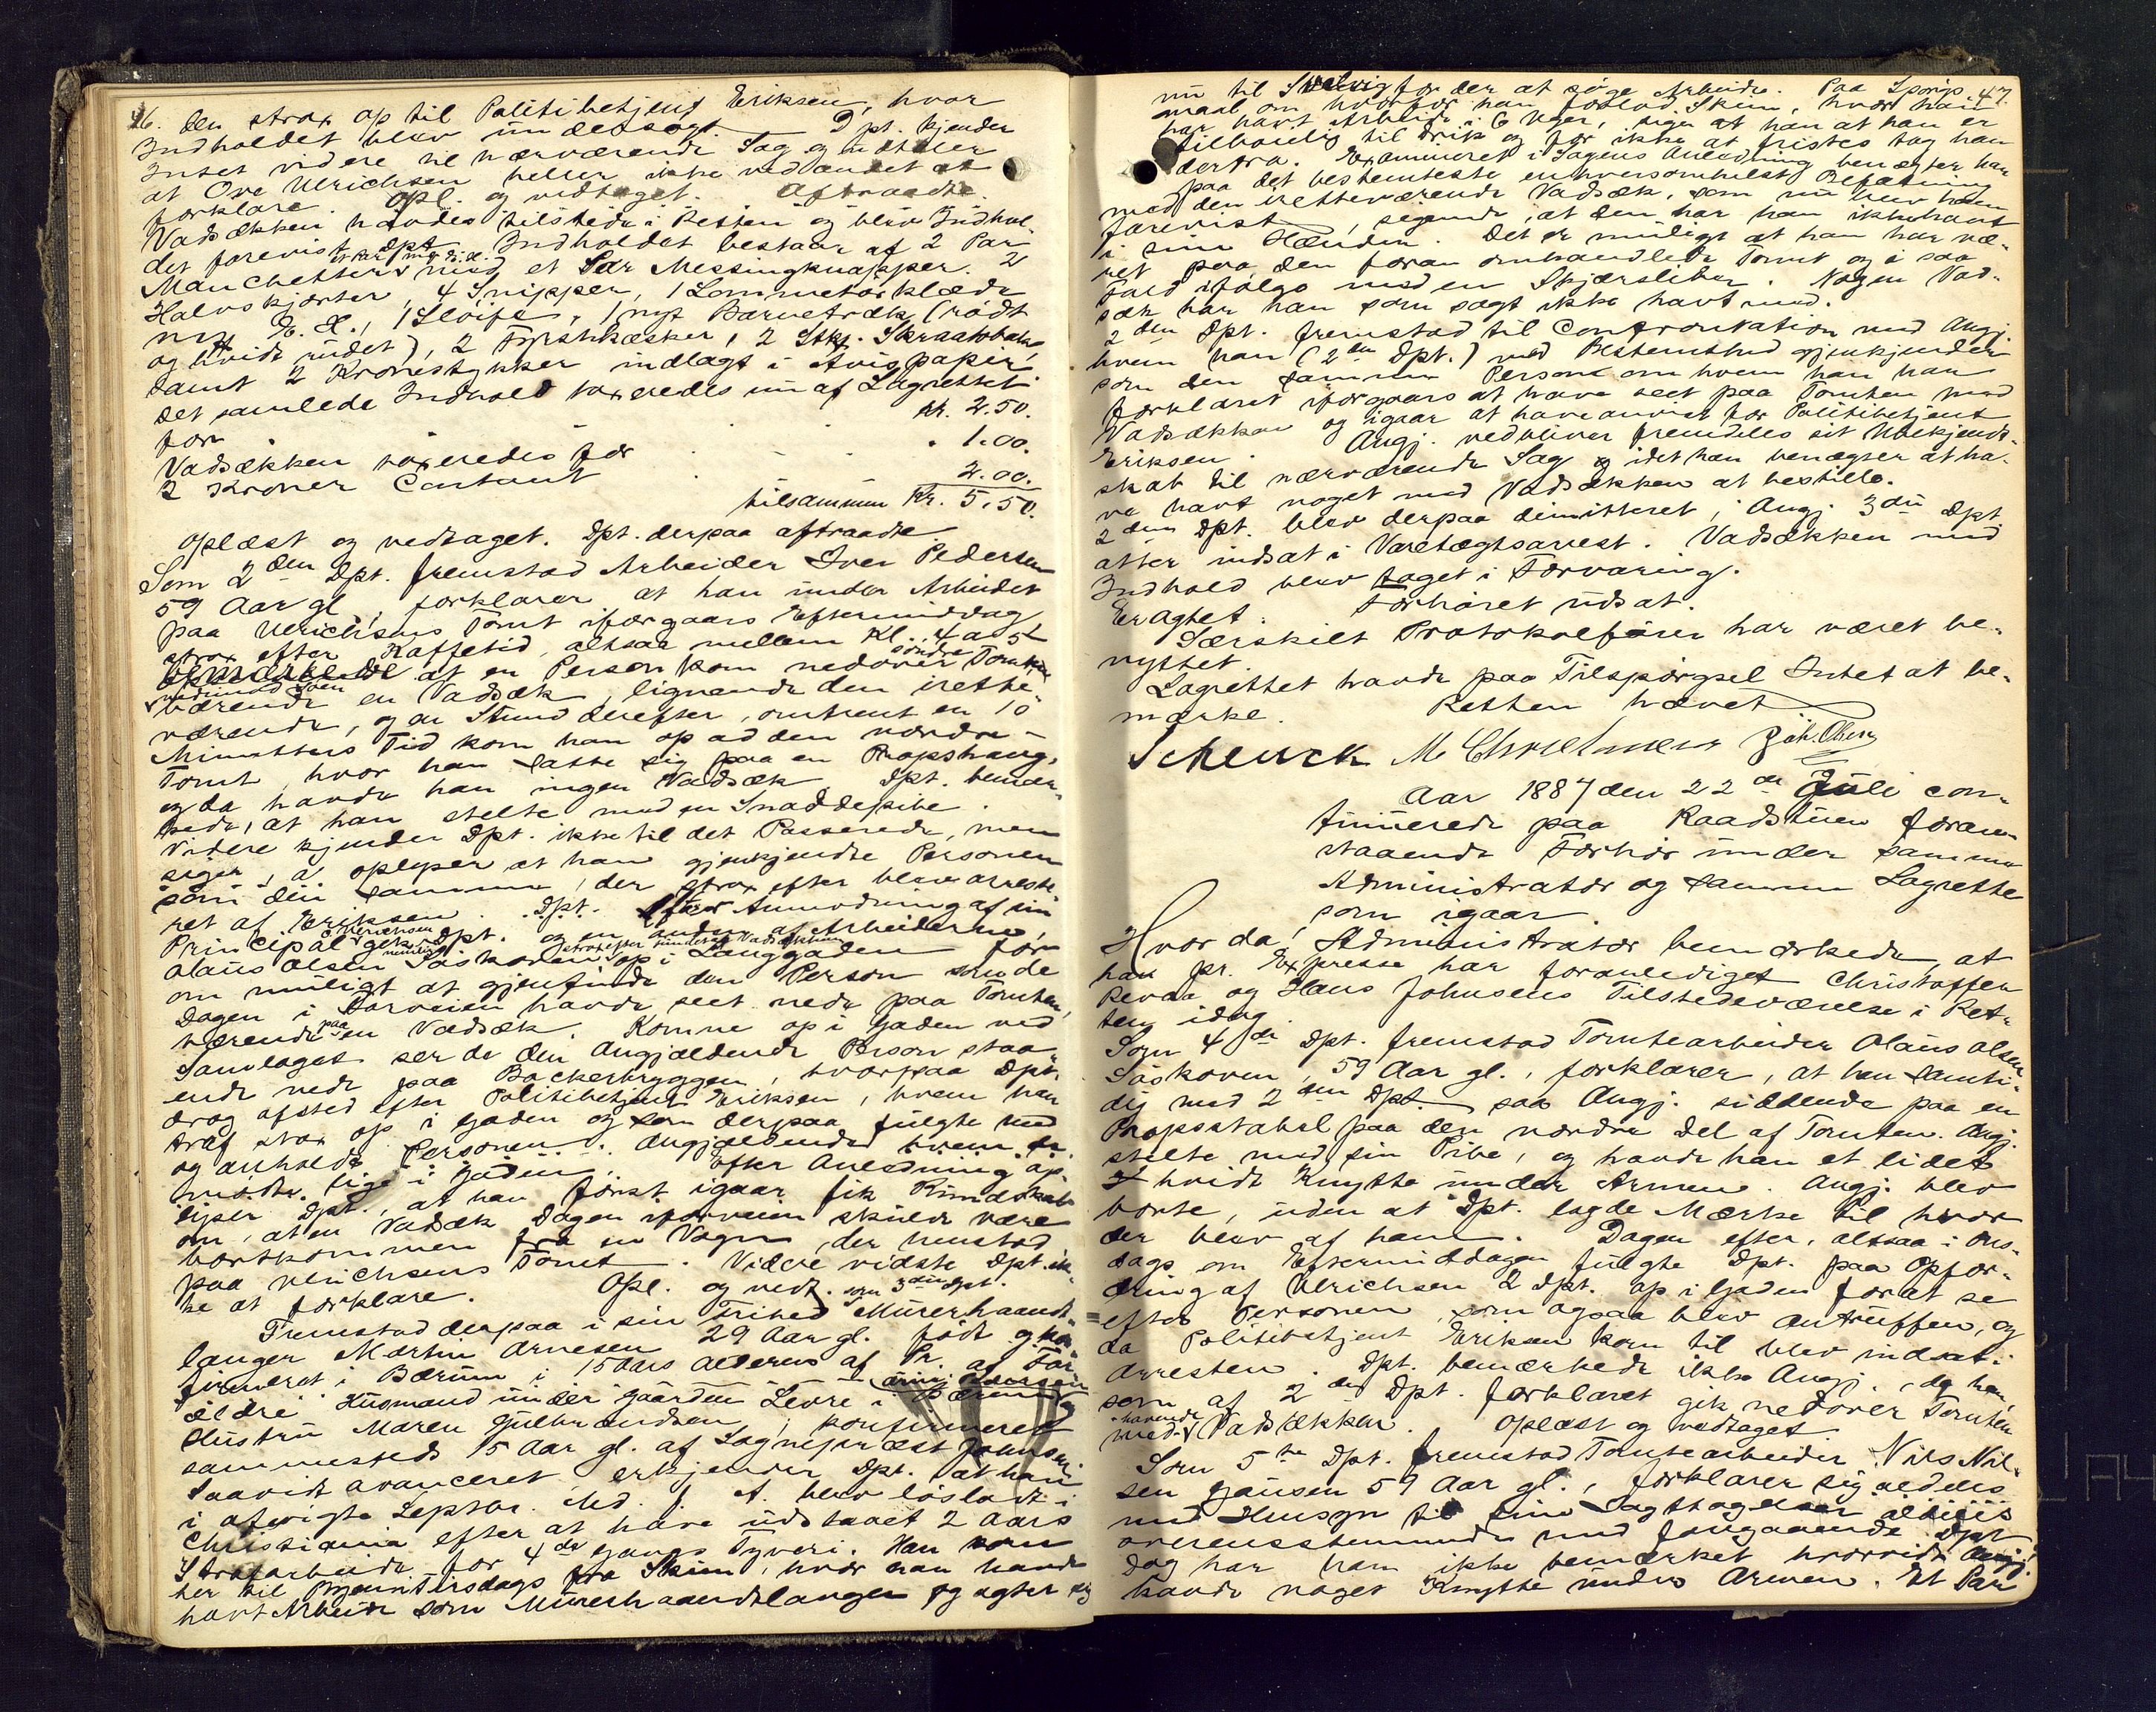 46.
den strax op til Politibetjent Eriksen, hvor
Indholdet blev undersøgt. Dpt. kjender
Intet videre til nærværende Sag og udtaler
at Ove Ulrichsen heller ikke ved andet at
forklare. Opl. og vedtaget. Aftraadte.
Vadsækken havdes tilstede i Retten og blev Indhol-
det forevist Dpt. Indholdet bestaar af 2 Par
Manchetter med et Par Messingknapper. 2
Halvskjorter, 4 Snipper, 1 Lommetørklæde
mrk. E. H., 1 Sløife, 1 nyt Barnetræk (rødt
og hvidt rudet), 2 Fyrstikæsker, 2 Stkr. Skraatobak
samt 2 Kronestykker indlagt i Avispapir,
det samlede Indhold taxeredes nu af Lagrettet
for kr. 2.50.
Vadsækken taxeredes for 1.00.
2 Kroner Contant 2.00.
tilsammen Kr. 5.50.
Oplæst og vedtaget. Dpt. derpaa aftraadte.
Som 2den Dpt. fremstod Arbeider Iver Pedersen
59 Aar gl., forklarer at han under Arbeidet
paa Ulrichsens Tomt iforgaars Eftermiddag
strax efter Kaffetid, altsaa mellem Kl. 4 a 5
bemærkede at en Person kom nedover søndre Tomten
værende en Vadsæk, lignende den irette-
værende, og en Stund derefter, omtrent en 10
Minutters Tid kom han op ad den nordre
Tomt, hvor han satte sig paa en Propshaug,
og da havde han ingen Vadsæk. Dpt. bemær-
kede, at han stelte med en Snaddepibe.
Videre kjender Dpt. ikke til det Passerede, men
siger, at oplyser at han gjenkjendte Personen
som den samme, der strax efter blev arreste-
ret af Eriksen. Dpt. efter Anmodning af sin
Principal Ulrichsen gik Dpt. og en anden af Arbeiderne,
Olaus Olsen Saskoven strax efter op i Langgaden for
om muligt at gjenfinde den Person som de
Dagen i Forveien havde seet nede paa Tomten,
bærende paa en Vadsæk. Komne op i Gaden ved
Samlaget ser de den Angjældende Person staa-
ende nede paa Bockerbryggen, hvorpaa Dpt.
drog afsted efter Politibetjent Eriksen, hvem han
traf strax op i Gaden og som derpaa fulgte med
og anholdt Personen. Angjældende hvem de
mødte lige i Gaden. Efter Anledning op-
lyser Dpt., at han først igaar fik Kundskab
om, at en Vadsæk Dagen iforveien skulde være
bortkommen fra en Vogn, der henstod
paa Ulrichsens Tomt. Videre vidste Dpt. ik-
ke at forklare. Opl. og vedt. som 3die Dpt.
Fremstod derpaa i sin Frihed Murerhaandt-
langer Martin Arnesen 29 Aar gl. født og kon-
firmeret i Bærum i 15 Aars Alderen af Pr. af For-
ældre Husmand under Gaarden Levre i Bærum og
Hustru Maren Gulbrandsen, konfirmeret
sammesteds 15 Aar gl. af Sogneprest Johnsen.
Saavidt avanceret erkjender Dpt. at han
i afvigte Septbr. Md. f. A. blev løsladt i
Christiania efter at have udstaaet 2 Aars
Strafarbeide for 4de Gangs Tyveri. Han kom
her til Byen Tirsdags fra Skien, hvor han havde
havt Arbeide som Murerhaandtlanger og agter sig
47.
nu til Svelvig for der at søge Arbeide. Paa Spørgs-
maal om hvorfor han forlod Skien, hvor han
har havt Arbeide i 6 Uger, siger at han at han er
tilbøielig til Drik og for ikke at fristes tog han
derfra. Examineret i Sagens Anledning benægter han
paa det bestemteste enhversomhelst Befatning
med den iretteværende Vadsæk, som nu blev ham
forevist, sigende, at den har han ikke havt
i sine Hænder. Det er muligt at han har væ-
ret paa den foran omhandlede Tomt og i saa
Fald ifølge med en Skjærsliber. Nogen Vad-
sæk har han som sagt ikke havt med.
2den Dpt. fremstod til Confrontation med Angj.
hvem han (2den Dpt.) med Bestemthed gjenkjender
som den samme Person om hvem han har
forklaret iforgaars at have seet paa Tomten med
Vadsækken og igaar at have anvist for Politibetjent
Eriksen. Angj. vedbliver fremdeles sit Ubekjendt-
skab til nærværende Sag idet han benægter at ha-
ve havt noget med Vadsækken at bestille.
2den Dpt. blev derpaa dimitteret; Angj. 3die Dpt
atter indsat i Varetægtsarrest. Vadsækken med
Indhold blev taget i Forvaring.
Eragtet: Forhøret udsat.
Særskilt Protokolfører har været be-
nyttet.
Lagrettet havde paa Tilspørgsel Intet at be-
mærke. Retten hævet
Schenck M. Christensen Joh. Olsen
Aar 1887 den 22de Juli con-
tinuerede paa Raadstuen foran-
staaende Forhør under samme
Administrator og samme Lagrette
som igaar.
Hvor da! Administrator bemærkede, at
han pr. Expresse har foranlediget Christoffer
Revaa og Hans Johnsens Tilstedeværelse i Ret-
ten idag.
Som 4de Dpt. fremstod Tomtearbeider Olaus Olsen
Saskoven, 59 Aar gl., forklarer, at han samti-
dig med 2den Dpt. saa Angj. siddende paa en
Propsstabel paa den nordre Del af Tomten. Angj.
stelte med sin Pibe, og havde han et lidet
hvidt Knytte under Armen. Angj. blev
borte, uden at Dpt. lagde Mærke til hvor
der blev af ham. Dagen efter, altsaa i Ons-
dags om Eftermiddagen fulgte Dpt. paa Opfor-
dring af Ulrichsen 2 Dpt. op i Gaden forat se
efter Personen, som ogsaa blev antruffen, og
da Politibetjent Eriksen kom til blev indsat i
Arresten. Dpt. bemærkede ikke Angj., da han,
som af 2den Dpt. forklaret gik nedover Tomten
havende med Vadsækken. Oplæst og vedtaget.
Som 5te Dpt. fremstod Tomtearbeider Nils Nil-
sen Gausen 59 Aar gl., forklarer sig aldeles
med Hensyn til sine Iagttagelser
overensstemmende med foregaaende Dpt
dog har han ikke bemærket hvorvidt Angj.
havde noget Knytte under Armen. Et Par